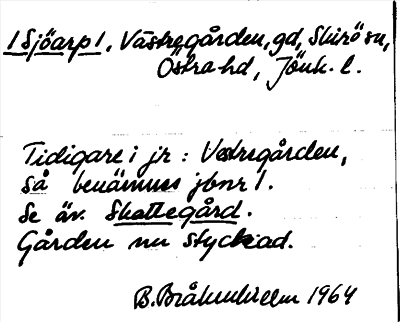 /Sjöarp/, Västregården, gd, Skirö sn,
Östra hd, Jönk. l.
Tidigare i jr: Vestregården,
så benämnes jbnr 1.
Se äv. Skattegård.
Gården nu styckad.
1964